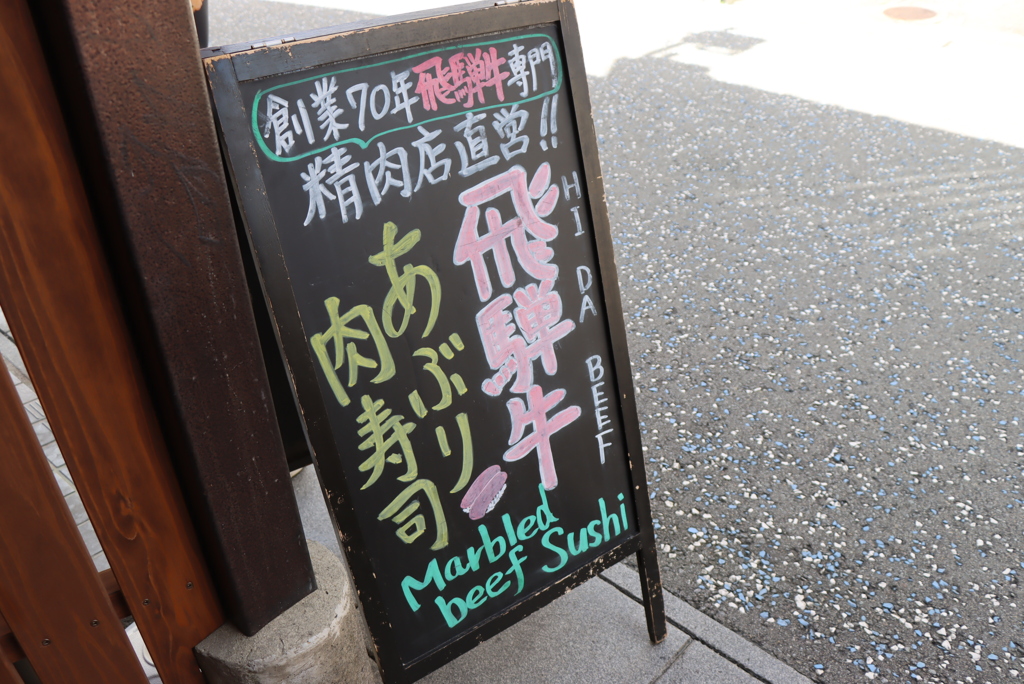 創業70年飛騨牛専門
精肉店直営!!
飛騨牛
HIDA BEEF
あぶり
肉寿司
Marbled
beef Sushi